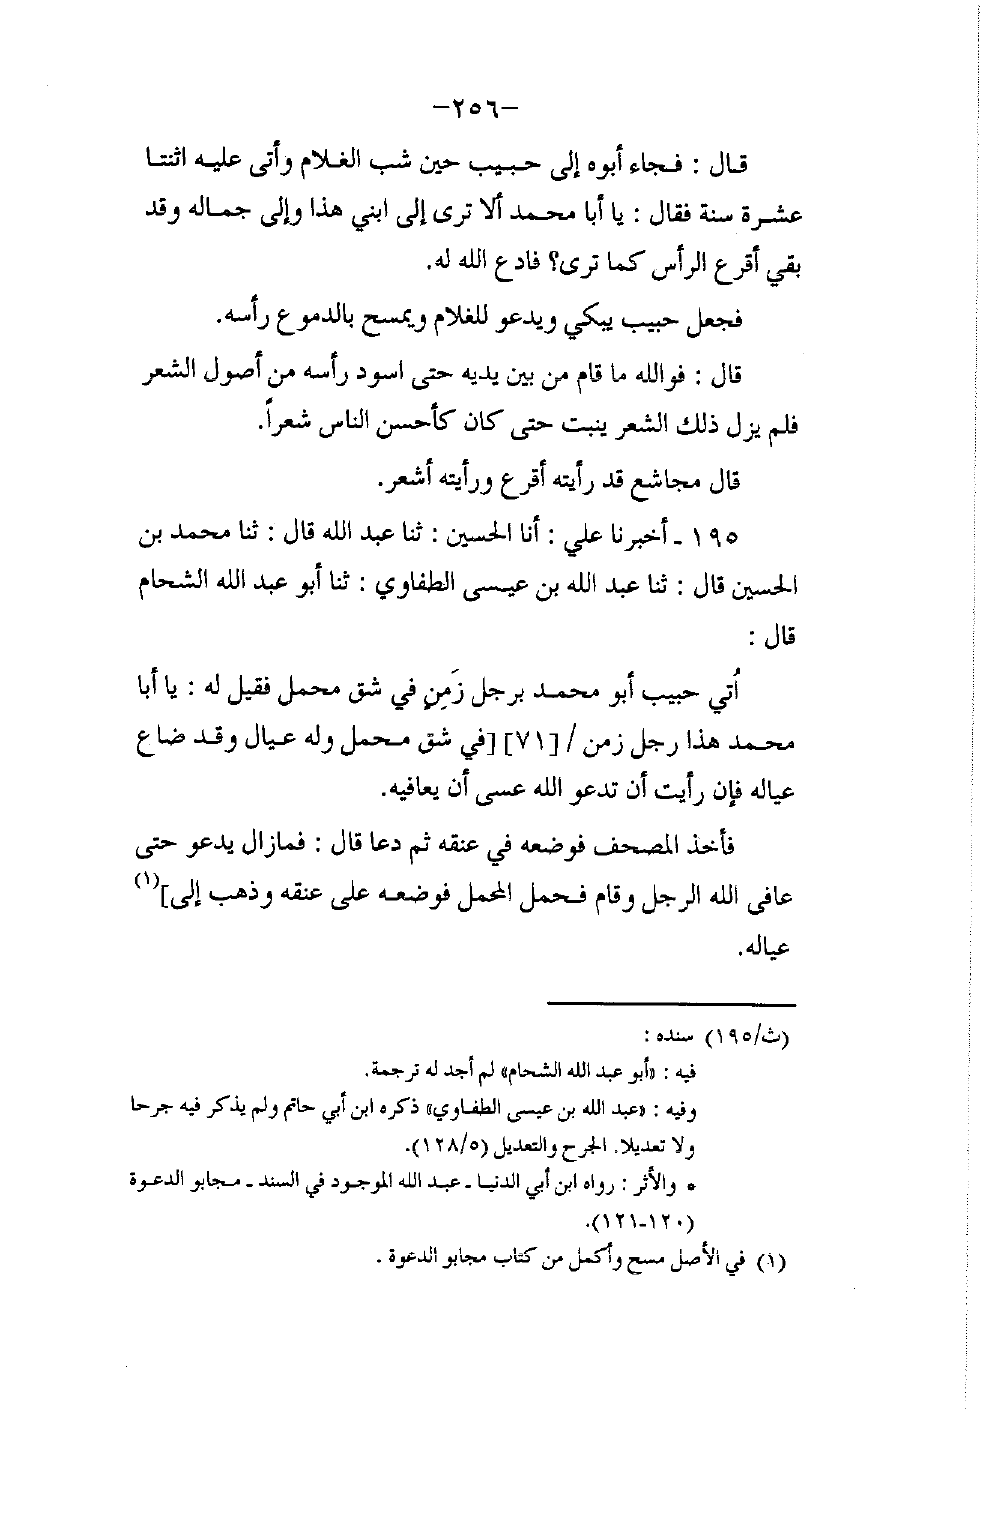 -٢٥٦-
قال : فجاء أبوه إلى حبيب حين شب الغلام وأتى عليه اثنتا
عشرة سنة فقال : يا أبا محمد ألا ترى إلى ابني هذا وإلى جماله وقد
بقي أقرع الرأس كما ترى؟ فادع الله له.
فجعل حبيب يبكي ويدعو للغلام ويمسح بالدموع رأسه.
قال : فوالله ما قام من بين يديه حتى اسود رأسه من أصول الشعر
فلم يزل ذلك الشعر ينبت حتى كان كأحسن الناس شعراً.
قال مجاشع قد رأيته أقرع ورأيته أشعر.
١٩٥ ـ أخبرنا علي : أنا الحسين : ثنا عبد الله قال : ثنا محمد بن
الحسين قال : ثنا عبد الله بن عيسى الطفاوي : ثنا أبو عبد الله الشحام
قال :
أُتي حبيب أبو محمد برجل زَمِنٍ في شق محمل فقيل له : يا أبا
محمد هذا رجل زمن / [٧١] [في شق محمل وله عيال وقد ضاع
عياله فإن رأيت أن تدعو الله عسى أن يعافيه.
فأخذ المصحف فوضعه في عنقه ثم دعا قال : فمازال يدعو حتى
عافى الله الرجل وقام فحمل المحمل فوضعه على عنقه وذهب إلى](١)
عياله.
(ث/١٩٥) سنده :
فيه : «أبو عبد الله الشحام» لم أجد له ترجمة.
وفيه : «عبد الله بن عيسى الطفاوي» ذكره ابن أبي حاتم ولم يذكر فيه جرحا
ولا تعديلا. الجرح والتعديل (١٢٨/٥).
* والأثر : رواه ابن أبي الدنيا ـ عبد الله الموجود في السند ـ مجابو الدعوة
(١٢٠-١٢١).
(١) في الأصل مسح وأكمل من كتاب مجابو الدعوة .